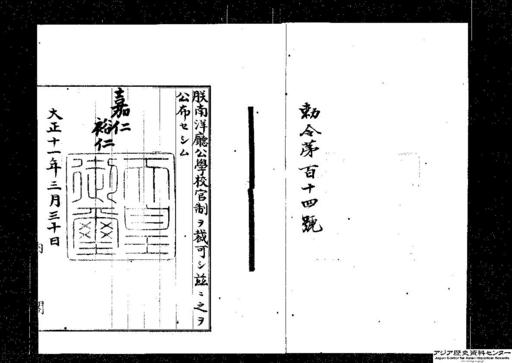 勅令第百十四號
朕南洋廳公學校官制ヲ裁可シ茲ニ之ヲ
公布セシム
嘉仁
裕仁
天皇
御璽
大正十一年三月三十日
内閣
アジア歴史資料センター
Japan Center for Asian Historical Records